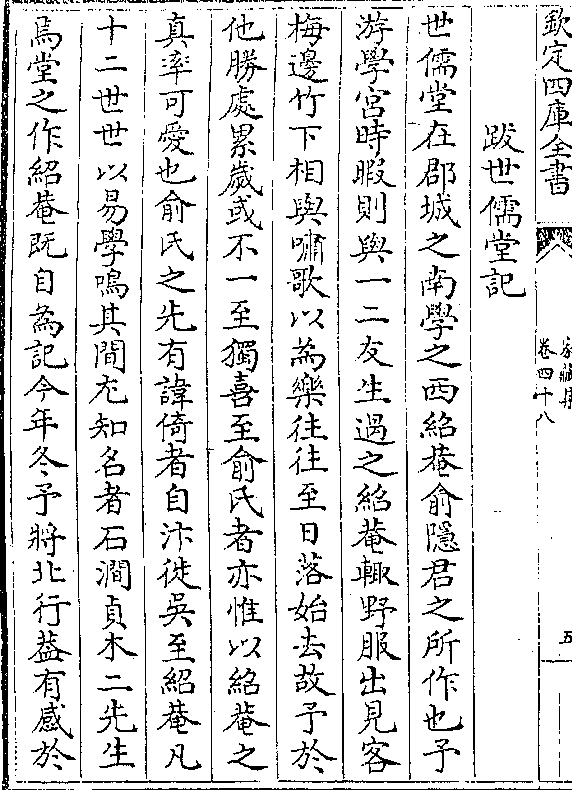 欽定四庫全書
家藏集
卷四十八
五
跋世儒堂記
世儒堂在郡城之南學之西紹菴俞隱君之所作也予
游學宫時暇則與一二友生過之紹菴輙野服出見客
梅邊竹下相與嘯歌以為樂往往至日落始去故予於
他勝處累歲或不一至獨喜至俞氏者亦惟以紹菴之
真率可愛也俞氏之先有諱倚者自汴徙吳至紹菴凡
十二世世以易學鳴其間尤知名者石澗貞木二先生
焉堂之作紹菴既自為記今年冬予將北行葢有感於